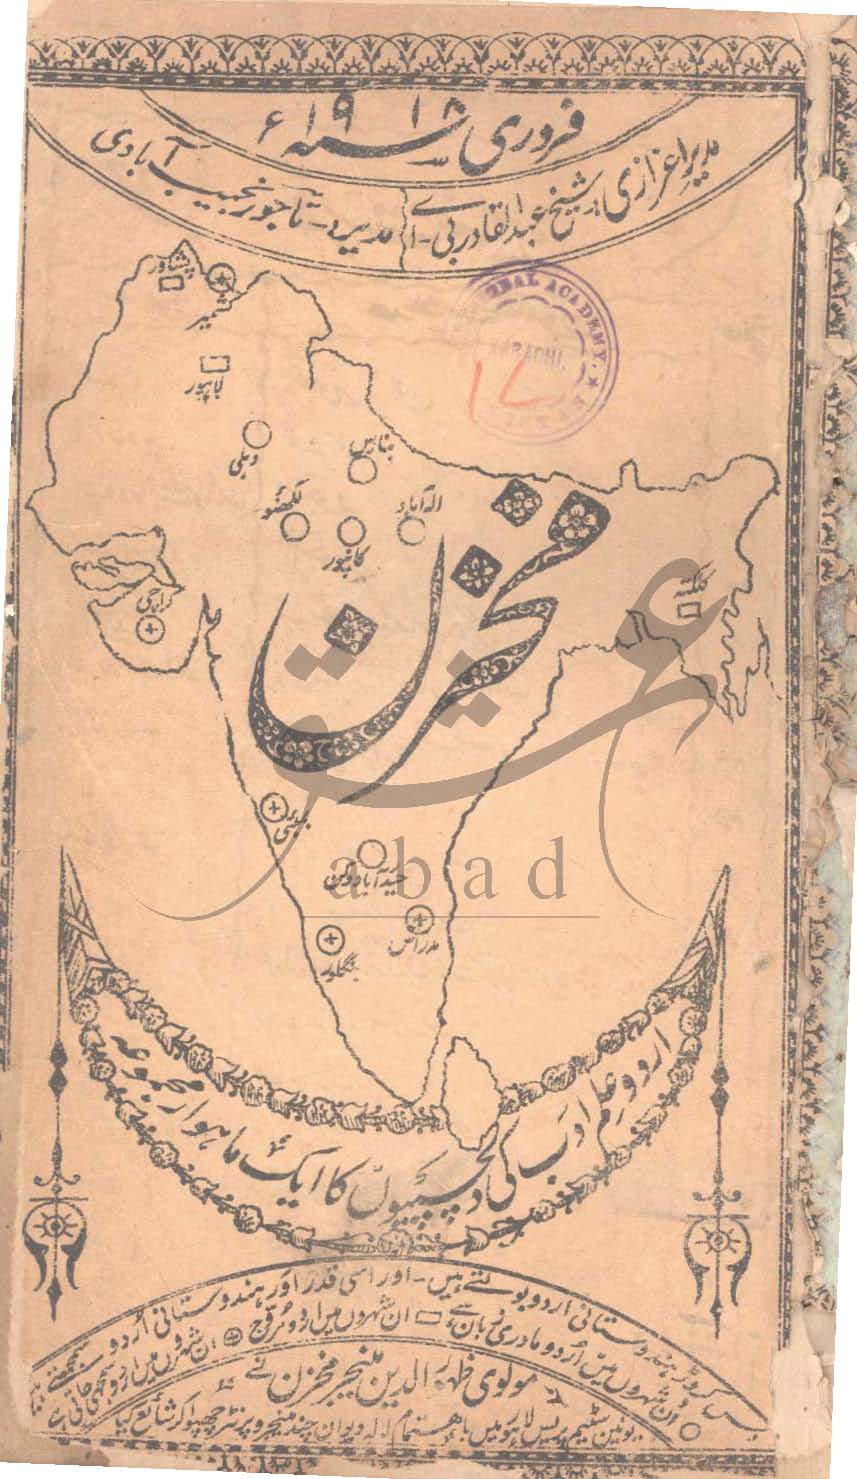 فروری ۱۹۱۸ء
مدیر اعزازی۔ شیخ عبدالقادر بی۔ اے
مدیر۔ تاجور نجیب آبادی
پشاور
کشمیر
لاہور
IQBAL ACADEMY.
KARACHI.
دہلی
بنارس
لکھنؤ
کانپور
الہ آباد
کراچی
کلکتہ
مخزن
عشق
abad
بمبئی
حیدرآباد دکن
مدراس
بنگلور
اردو علم ادب کی دلچسپیوں کا ایک ماہوار مجموعہ
کروڑ ہندوستانی اردو بولتے ہیں۔ اور اسی قدر اور ہندوستانی اُردو سمجھتے ہیں
اُن شہروں میں اُردو مادری زبان ہے ان شہروں میں اردو مروّج ان شہروں میں اردو سمجھی جاتی ہے
مولوی ظہور الدین مینیجر مخزن نے
یونین سٹیم پریس لاہور میں باہتمام لالہ دیوان چند مینیجر و پرنٹر چھپوا کر شائع کیا